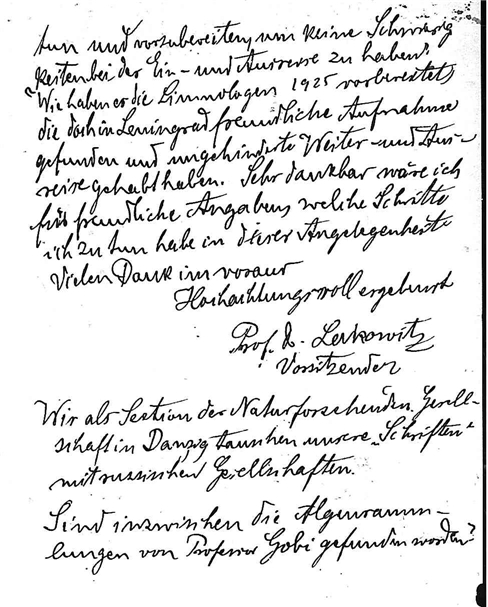 tun und vorzubereiten, um keine Schwierig
keiten bei der Ein- und Ausreise zu haben?
Wie haben es die Limnologen 1925 vorbereitet,
die doch in Leningrad freundliche Aufnahme
gefunden und ungehinderte Weiter- und Aus-
reise gehabt haben. Sehr dankbar wäre ich
für freundliche Angaben, welche Schritte
ich zu tun habe in dieser Angelegenheit.
Vielen Dank im voraus
Hochachtungsvoll ergebenst
Prof. Dr. Lakowitz
Vorsitzender
Wir als Section der Naturforschenden Gesell-
schaft in Danzig tauschen unsere „Schriften“
mit russischen Gesellschaften.
Sind inzwischen die Algensamm-
lungen von Professor Gobi gefunden worden?